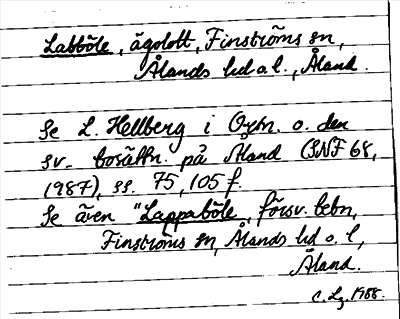 Labböle, ägolott, Finströms sn,
Ålands hd o. l., Åland.
Se L. Hellberg i Ortn. o. den
sv. bosättn. på Åland (SNF 68,
1987), ss. 75, 105 f.
Se även "Lappaböle, försv. bebn,
Finströms sn, Ålands hd o. l,
Åland.
C. Lg. 1988.